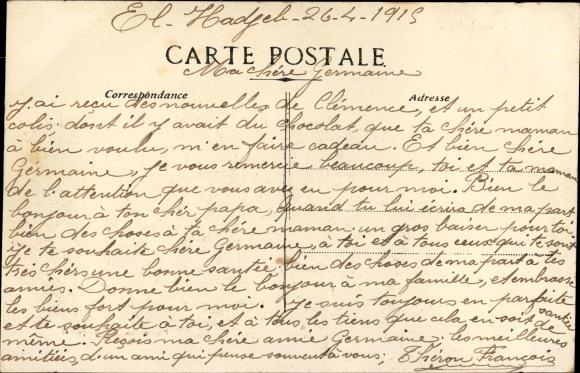 El-Hadjeb-26-4-1915
CARTE POSTALE
Ma chére Germaine
Correspondance
Adresse
J'ai reçu des nouvelles de Clémence, et un petit
colis, dont il y avait du chocolat, que ta chère maman
à bien voulu, m'en faire cadeau. Et bien chère
Germaine, je vous remercie beaucoup, toi et ta maman
de l'attention que vous avez eu pour moi. Bien le
bonjour à ton chér papa, quand tu lui écriras de ma part
bien des choses à ta chère maman, un gros baiser pour toi.
Je te souhaite chère Germaine, à toi et à tous ceux qui te sont
très chers une bonne santée, bien des choses de ma part à tes
amies. Donne bien le bonjour à ma famille, et embrasse
les biens fort pour moi. Je suis toujours en parfaite santée
et te souhaite à toi, et à tous les tiens que cela en soit de
même. Reçois ma chère amie Germaine, les meilleures
amitiées, d'un ami qui pense souvent à vous; Théron François